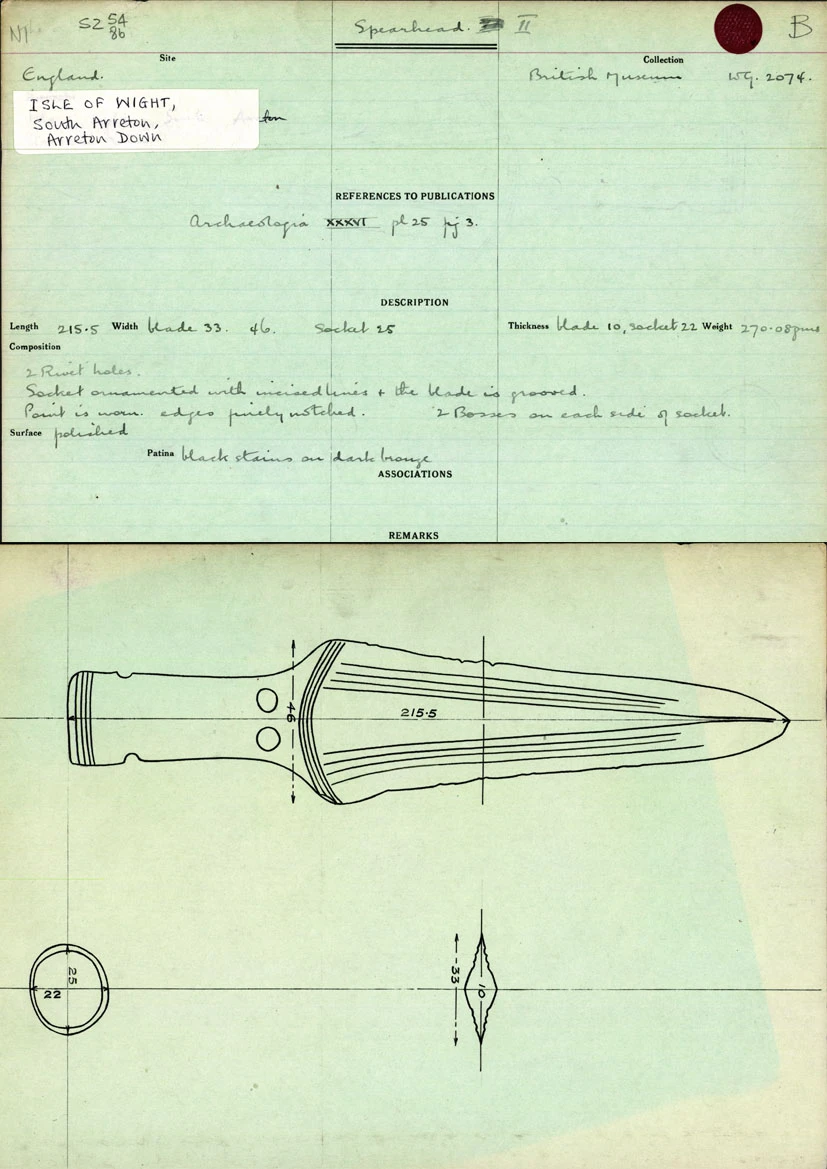 N1 SZ 54 86 Spearhead. II B
Site Collection
England. British Museum WG. 2074.
ISLE OF WIGHT,
South Arreton,
Arreton Down
REFERENCES TO PUBLICATIONS
Archaeologia XXXVI pl 25 fig 3.
DESCRIPTION
Length 215.5 Width blade 33. 46. Socket 25 Thickness blade 10, socket 22 Weight 270.08gms
Composition
2 Rivet holes.
Socket ornamented with incised lines + the blade is grooved.
Point is worn. edges finely notched. 2 Bosses on each side of socket.
Surface polished
Patina black stains on dark bronze
ASSOCIATIONS
REMARKS
46
215.5
25
22
33
10